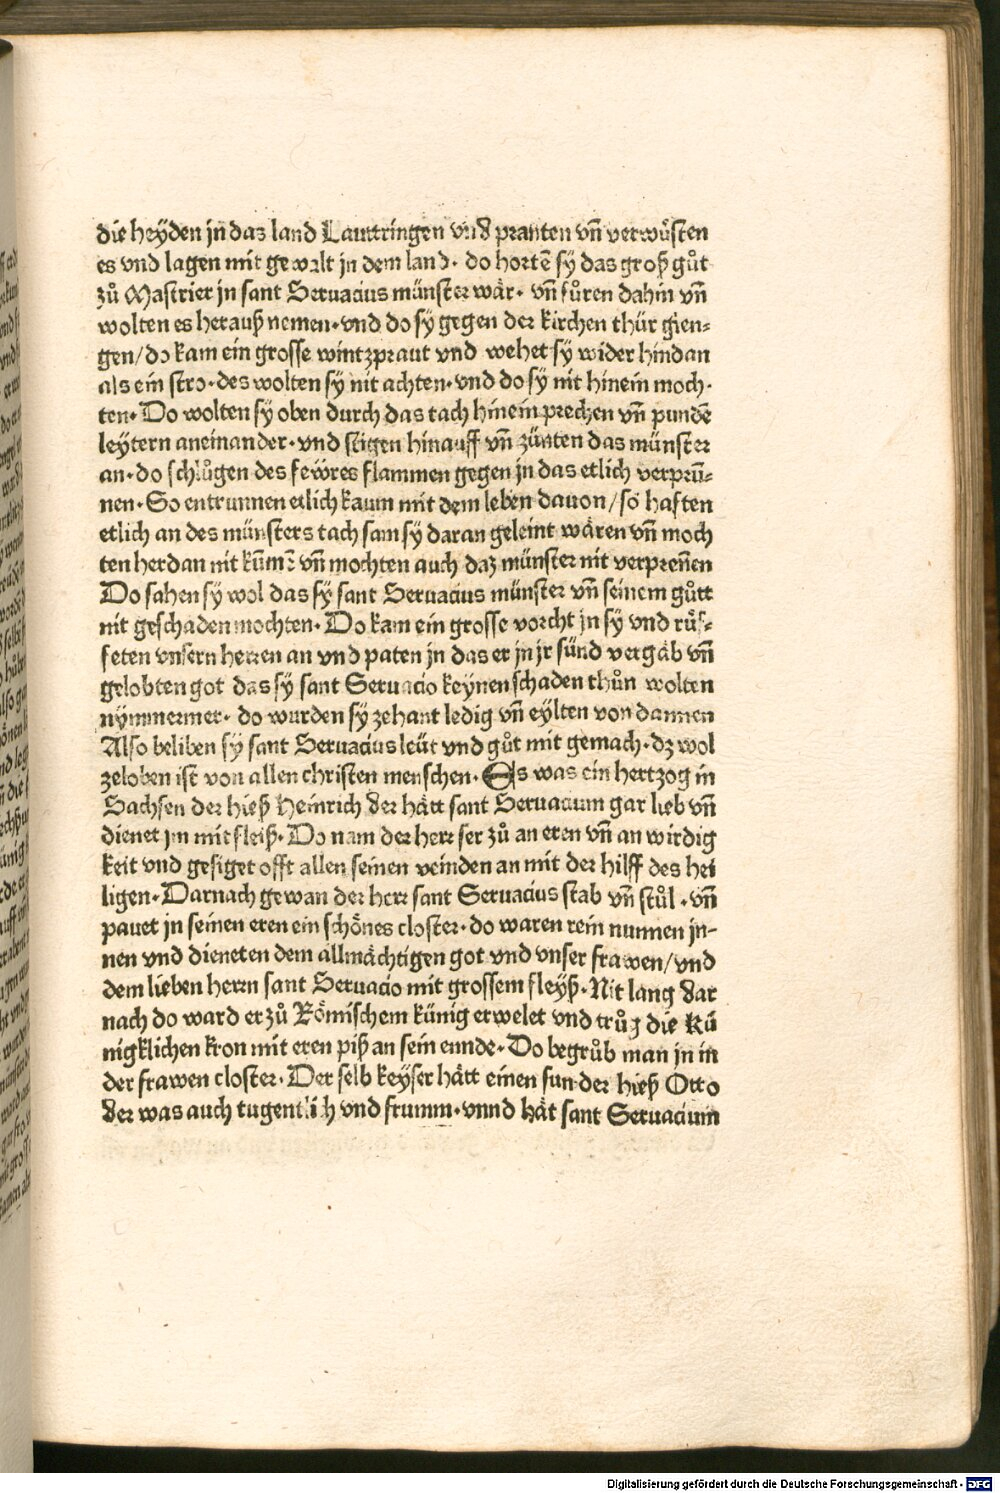 die heyden jn das land Lauttringen vnd pranten vñ verwůsten
es vnd lagen mit gewalt jn dem land. do hortē sÿ das groß gůt
zů Mastriet jn sant Seruacius münster wär. vñ fůren dahin vñ
wolten es herauß nemen. vnd do sÿ gegen der kirchen thür gien-
gen/do kam ein grosse wintzpraut vnd wehet sÿ wider hindan
als ein stro. des wolten sÿ nit achten. vnd do sÿ nit hinein moch.
ten. Do wolten sÿ oben durch das tach hinein prechen vñ pundē
leytern aneinander. vnd stigen hinauff vñ zünten das münster
an. do schlůgen des fewres flammen gegen jn das etlich verprū-
nen. So entrunnen etlich kaum mit dem leben dauon/so haften
etlich an des münsters tach sam sÿ daran geleint wären vñ moch
ten herdan nit kūmē vñ mochten auch daz münster nit verpreñen
Do sahen sÿ wol das sÿ sant Seruacius münster vñ seinem gůtt
nit geschaden mochten. Do kam ein grosse vorcht jn sÿ vnd růf-
feten vnsern herren an vnd paten jn das er jn jr sünd vergäb vñ
gelobten got das sÿ sant Seruacio keynen schaden thůn wolten
nymmermer. do wurden sÿ zehant ledig vñ eylten von dannen
Also beliben sÿ sant Seruacius leüt vnd gůt mit gemach. dz wol
zeloben ist von allen christen menschen. Es was ein hertzog in
Sachsen der hieß Heinrich der hätt sant Seruacium gar lieb vñ
dienet jm mit fleiß. Do nam der herr ser zů an eren vñ an wirdig
keit vnd gesiget offt allen seinen veinden an mit der hilff des hei
ligen. Darnach gewan der herr sant Seruacius stab vñ stůl. vñ
pauet jn seinen eren ein schönes closter. do waren rein nunnen jn-
nen vnd dieneten dem allmächtigen got vnd vnser frawen/vnd
dem lieben herrn sant Seruacio mit grossem fleyß. Nit lang dar
nach do ward er zů Römischem künig erwelet vnd trůg die Kü
nigklichen kron mit eren piß an sein ennde. Do begrůb man jn in
der frawen closter. Der selb keyser hätt einen sun der hieß Otto
der was auch tugentlich vnd frumm. vnnd hät sant Seruacium
Digitalisierung gefördert durch die Deutsche Forschungsgemeinschaft - DFG